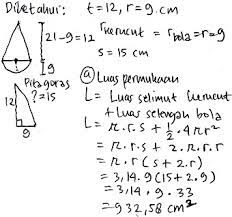 Diketahui: t=12, r=9 cm
21-9=12
r kerucut = r bola = r = 9
s = 15 cm
9
Pitagoras
? = 15
12
9
ⓐ Luas permukaan
L = Luas selimut kerucut
+ Luas setengah bola
L = π.r.s + 1/2.4πr²
= π.r.s + 2.π.r.r
= π.r (s + 2.r)
= 3,14.9 (15 + 2.9)
= 3,14.9.33
= 932,58 cm²